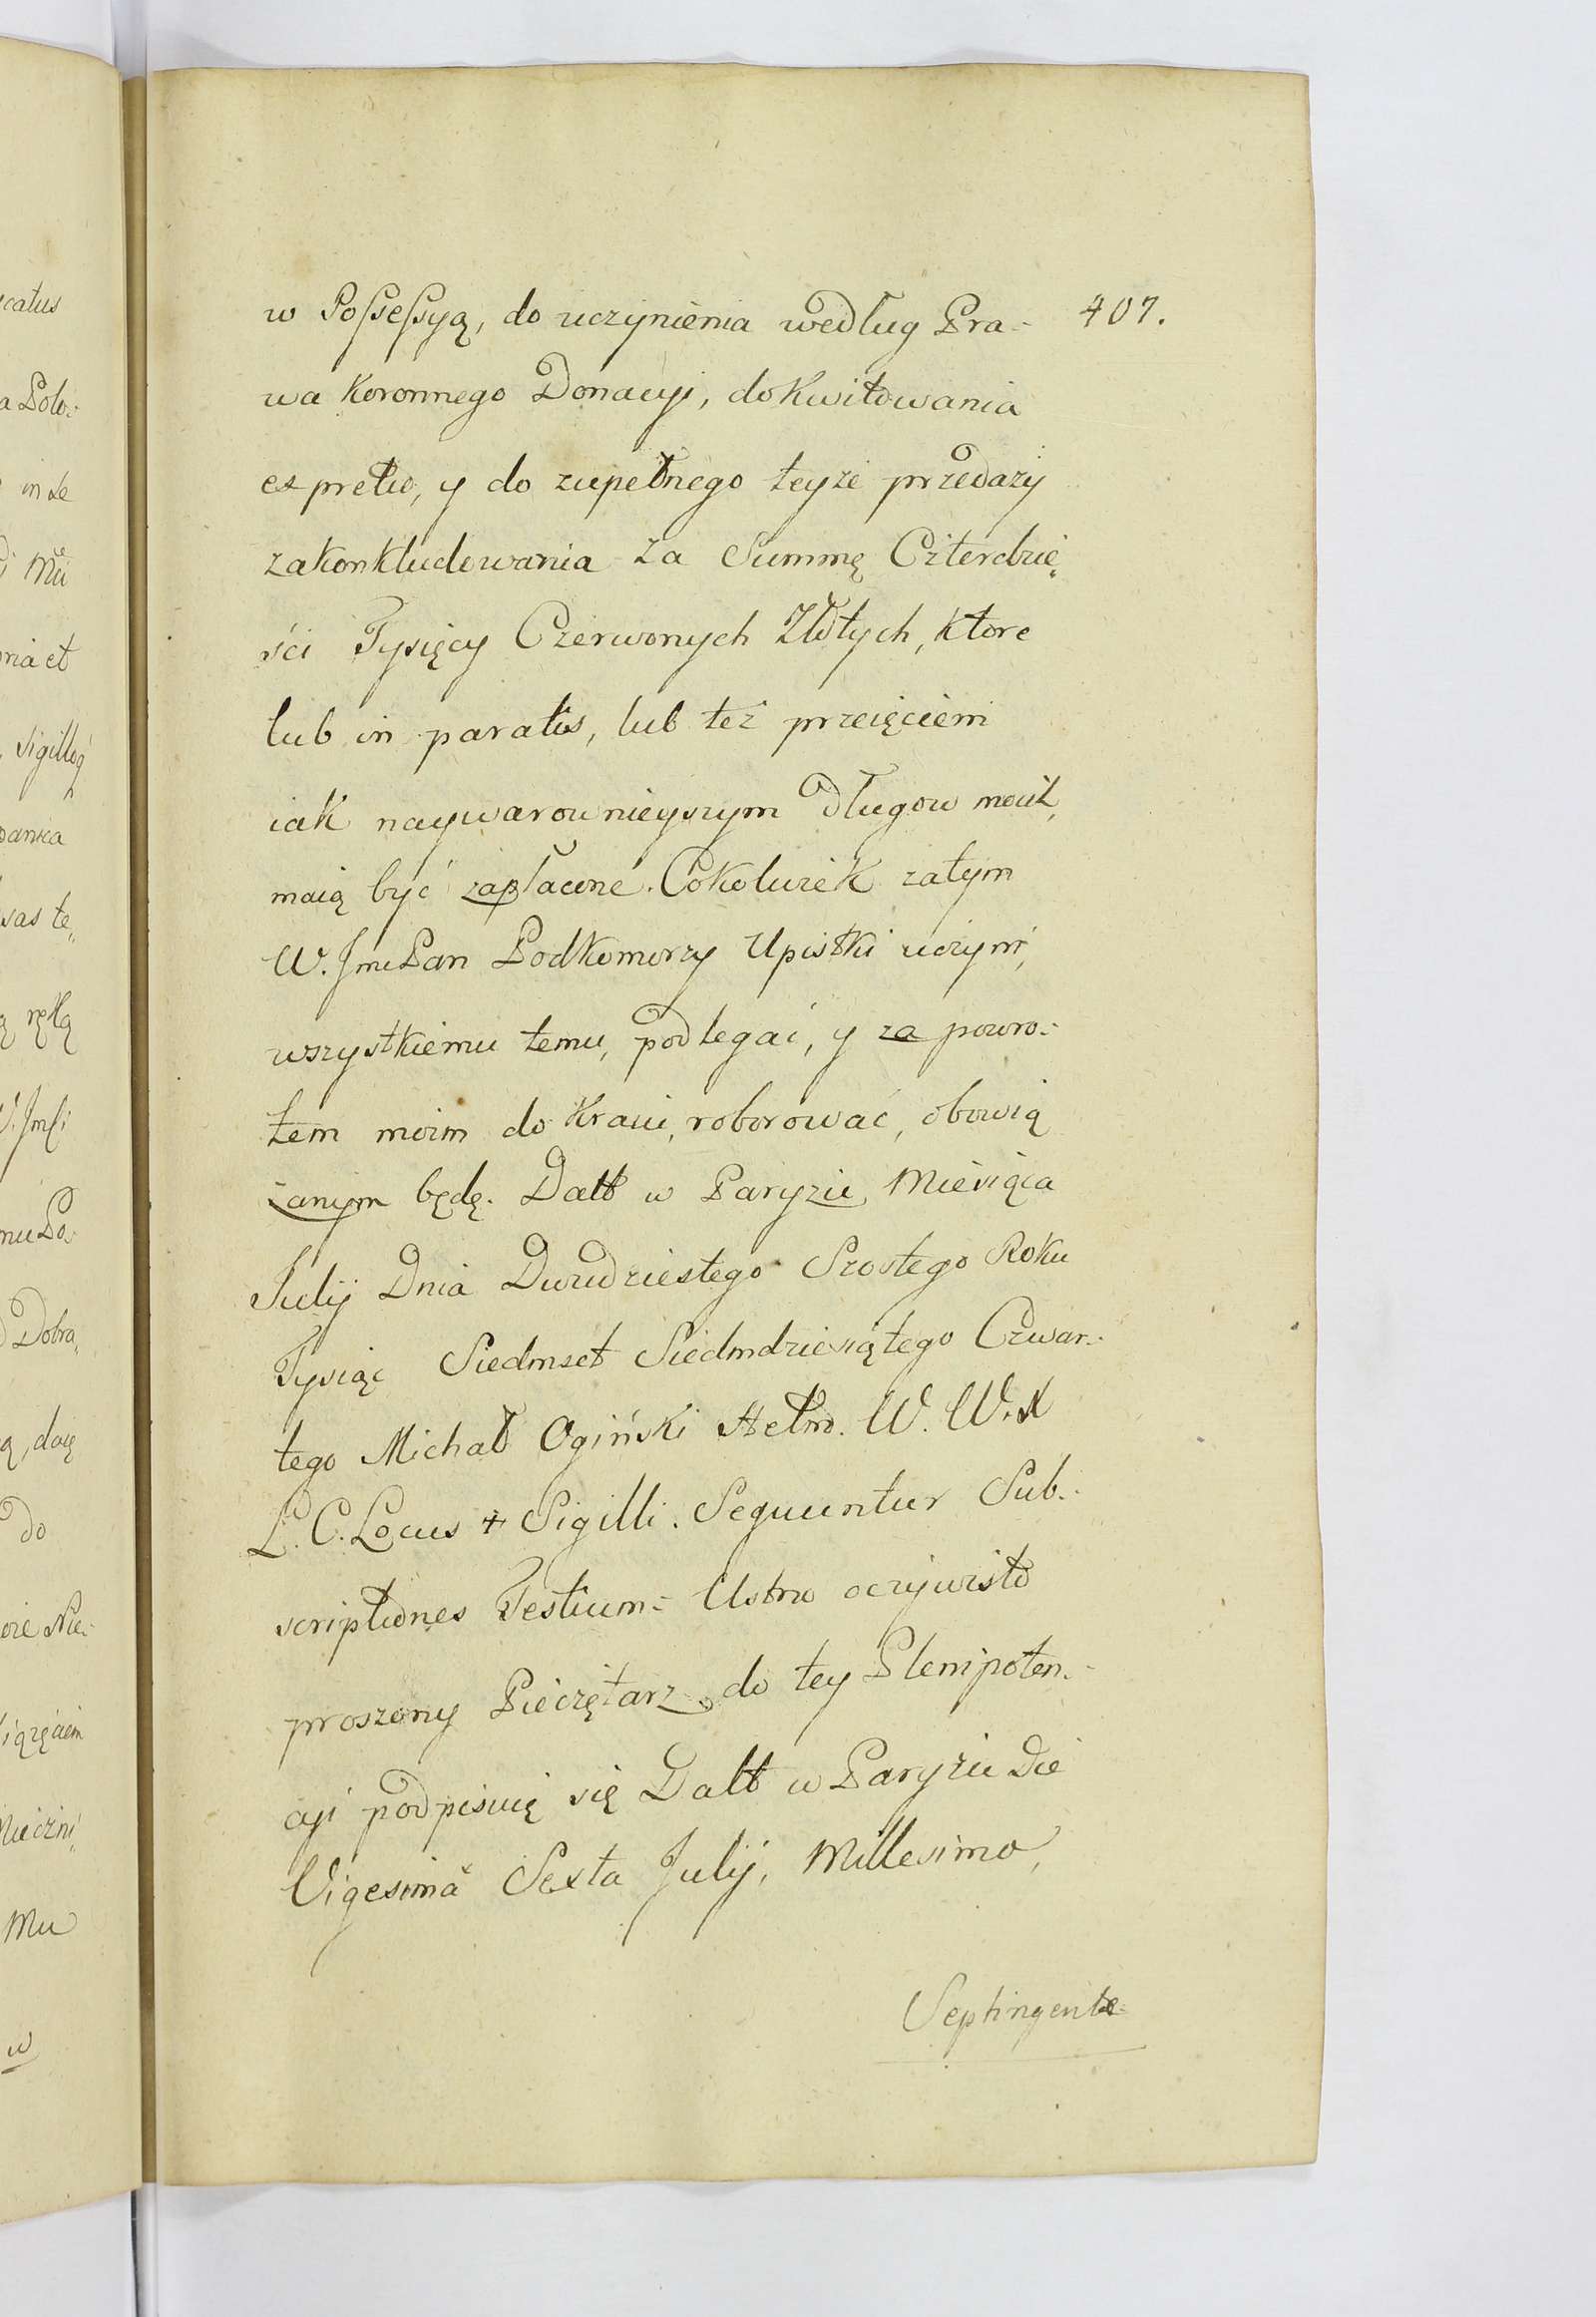 catus
a Polo-
in se
Mu
nia et
Sigilloq
dawca
sas te,
ą ręką
W. Jmci
mu Po-
Dobra,
ą, daię
do
oie Nie-
Xiążęciem
Mieczni,
Mu
w
407.
w Possessyą, do uczynienia według Pra-
wa Koronnego Donacyi, do kwitowania
ex pretio, y do zupełnego teyże przedaży
zakonkludowania za Summę Czterdzie,
ści Tysięcy Czerwonych Złotych, które
lub in paratis, lub też przeięciem
iak naywarownieyszym długow moich,
maią być zapłacone. Cokolwiek zatym
W. Jme Pan Podkomorzy Upitski uczyni,
wszystkiemu temu, podlegać, y za powro-
tem moim do Kraiu, roborować, obowią
zanym będę. Datt w Paryżu, Miesiąca
Julij Dnia Dwudziestego Szostego Roku
Tysiąc Siedmset Siedmdziesiątego Czwar-
tego Michał Ogiński Hetm. W. W. X
L. C. Locus + Sigilli. Sequuntur Sub-
scriptiones Testium- Ustno oczywisto
proszony Pieczętarz do tey Plenipoten-
cyi podpisuię się Datt w Paryżu Die
Vigesima Sexta Julij, Millesimo,
Septingente-